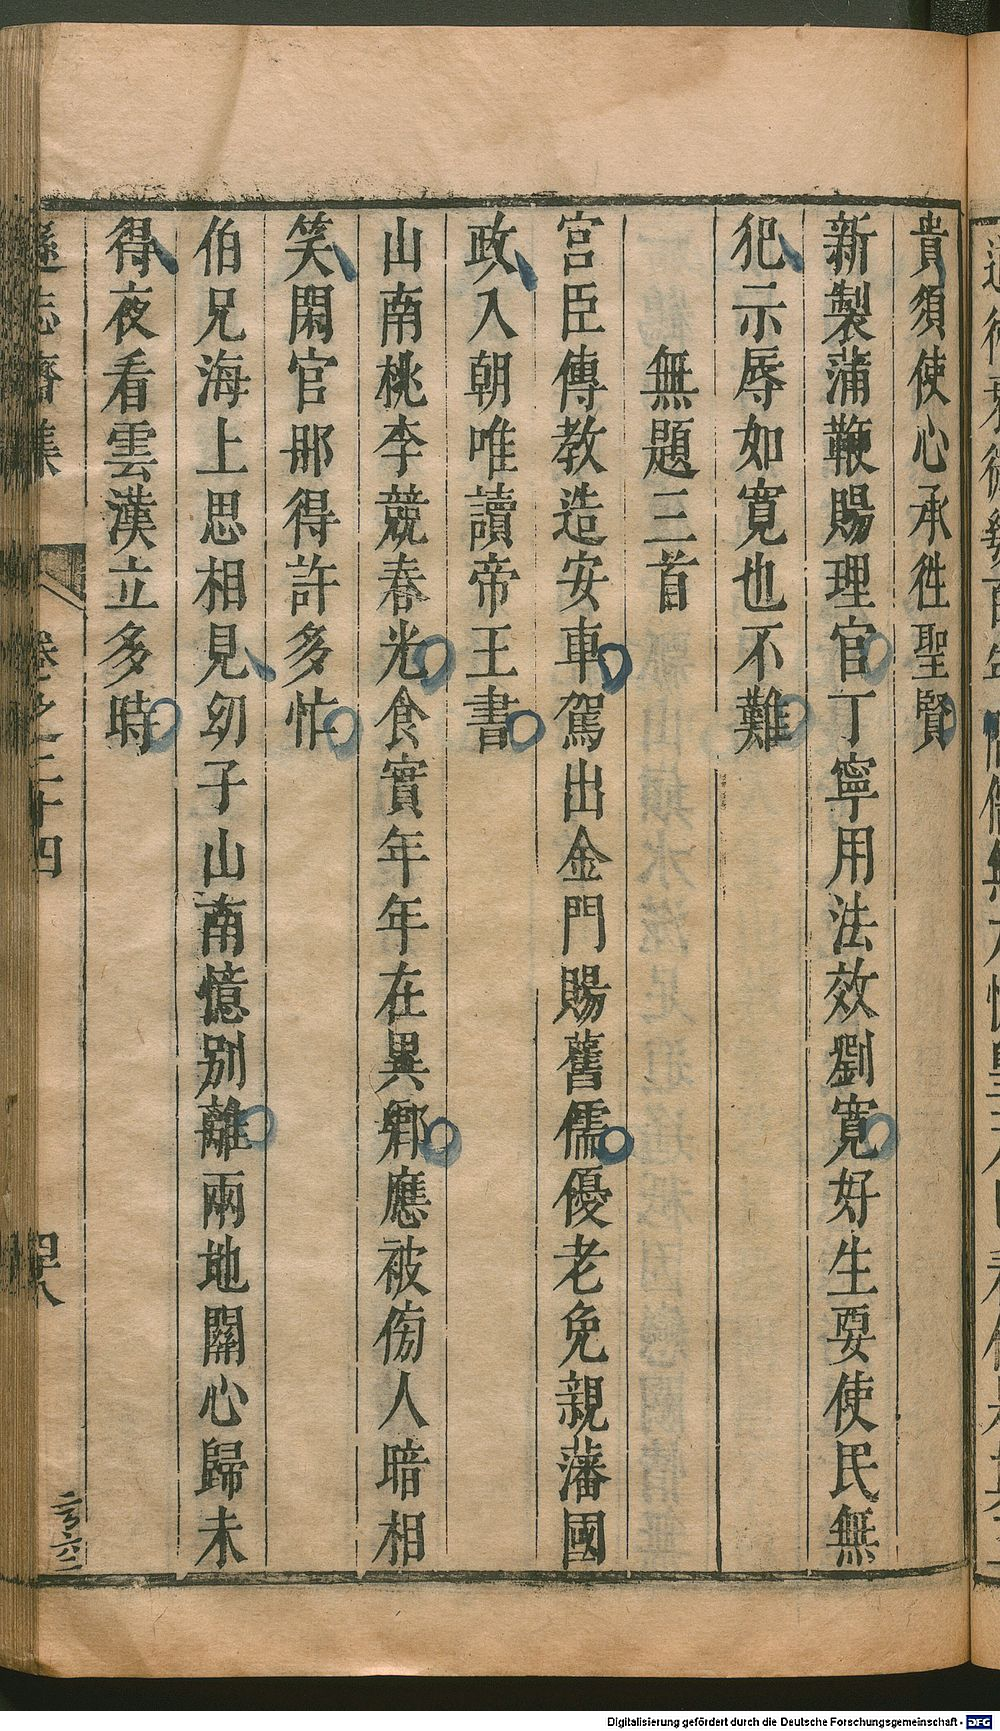 貴須使心承徃聖賢
新製蒲鞭賜理官丁寧用法效劉寛好生要使民無
犯示辱如寛也不難
無題三首
宮臣傳教造安車駕出金門賜舊儒優老免親藩國
政入朝唯讀帝王書
山南桃李競春光食實年年在異鄉應被傍人暗相
笑閑官那得許多忙
伯兄海上思相見幼子山南憶别離兩地關心歸未
得夜看雲漢立多時
遜志齋集
卷之二十四
四十八
Digitalisierung gefördert durch die Deutsche Forschungsgemeinschaft - DFG